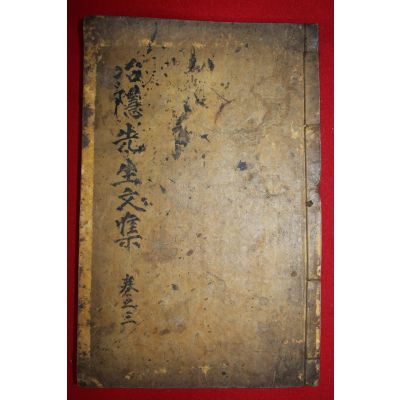 隱先生文集
卷之三